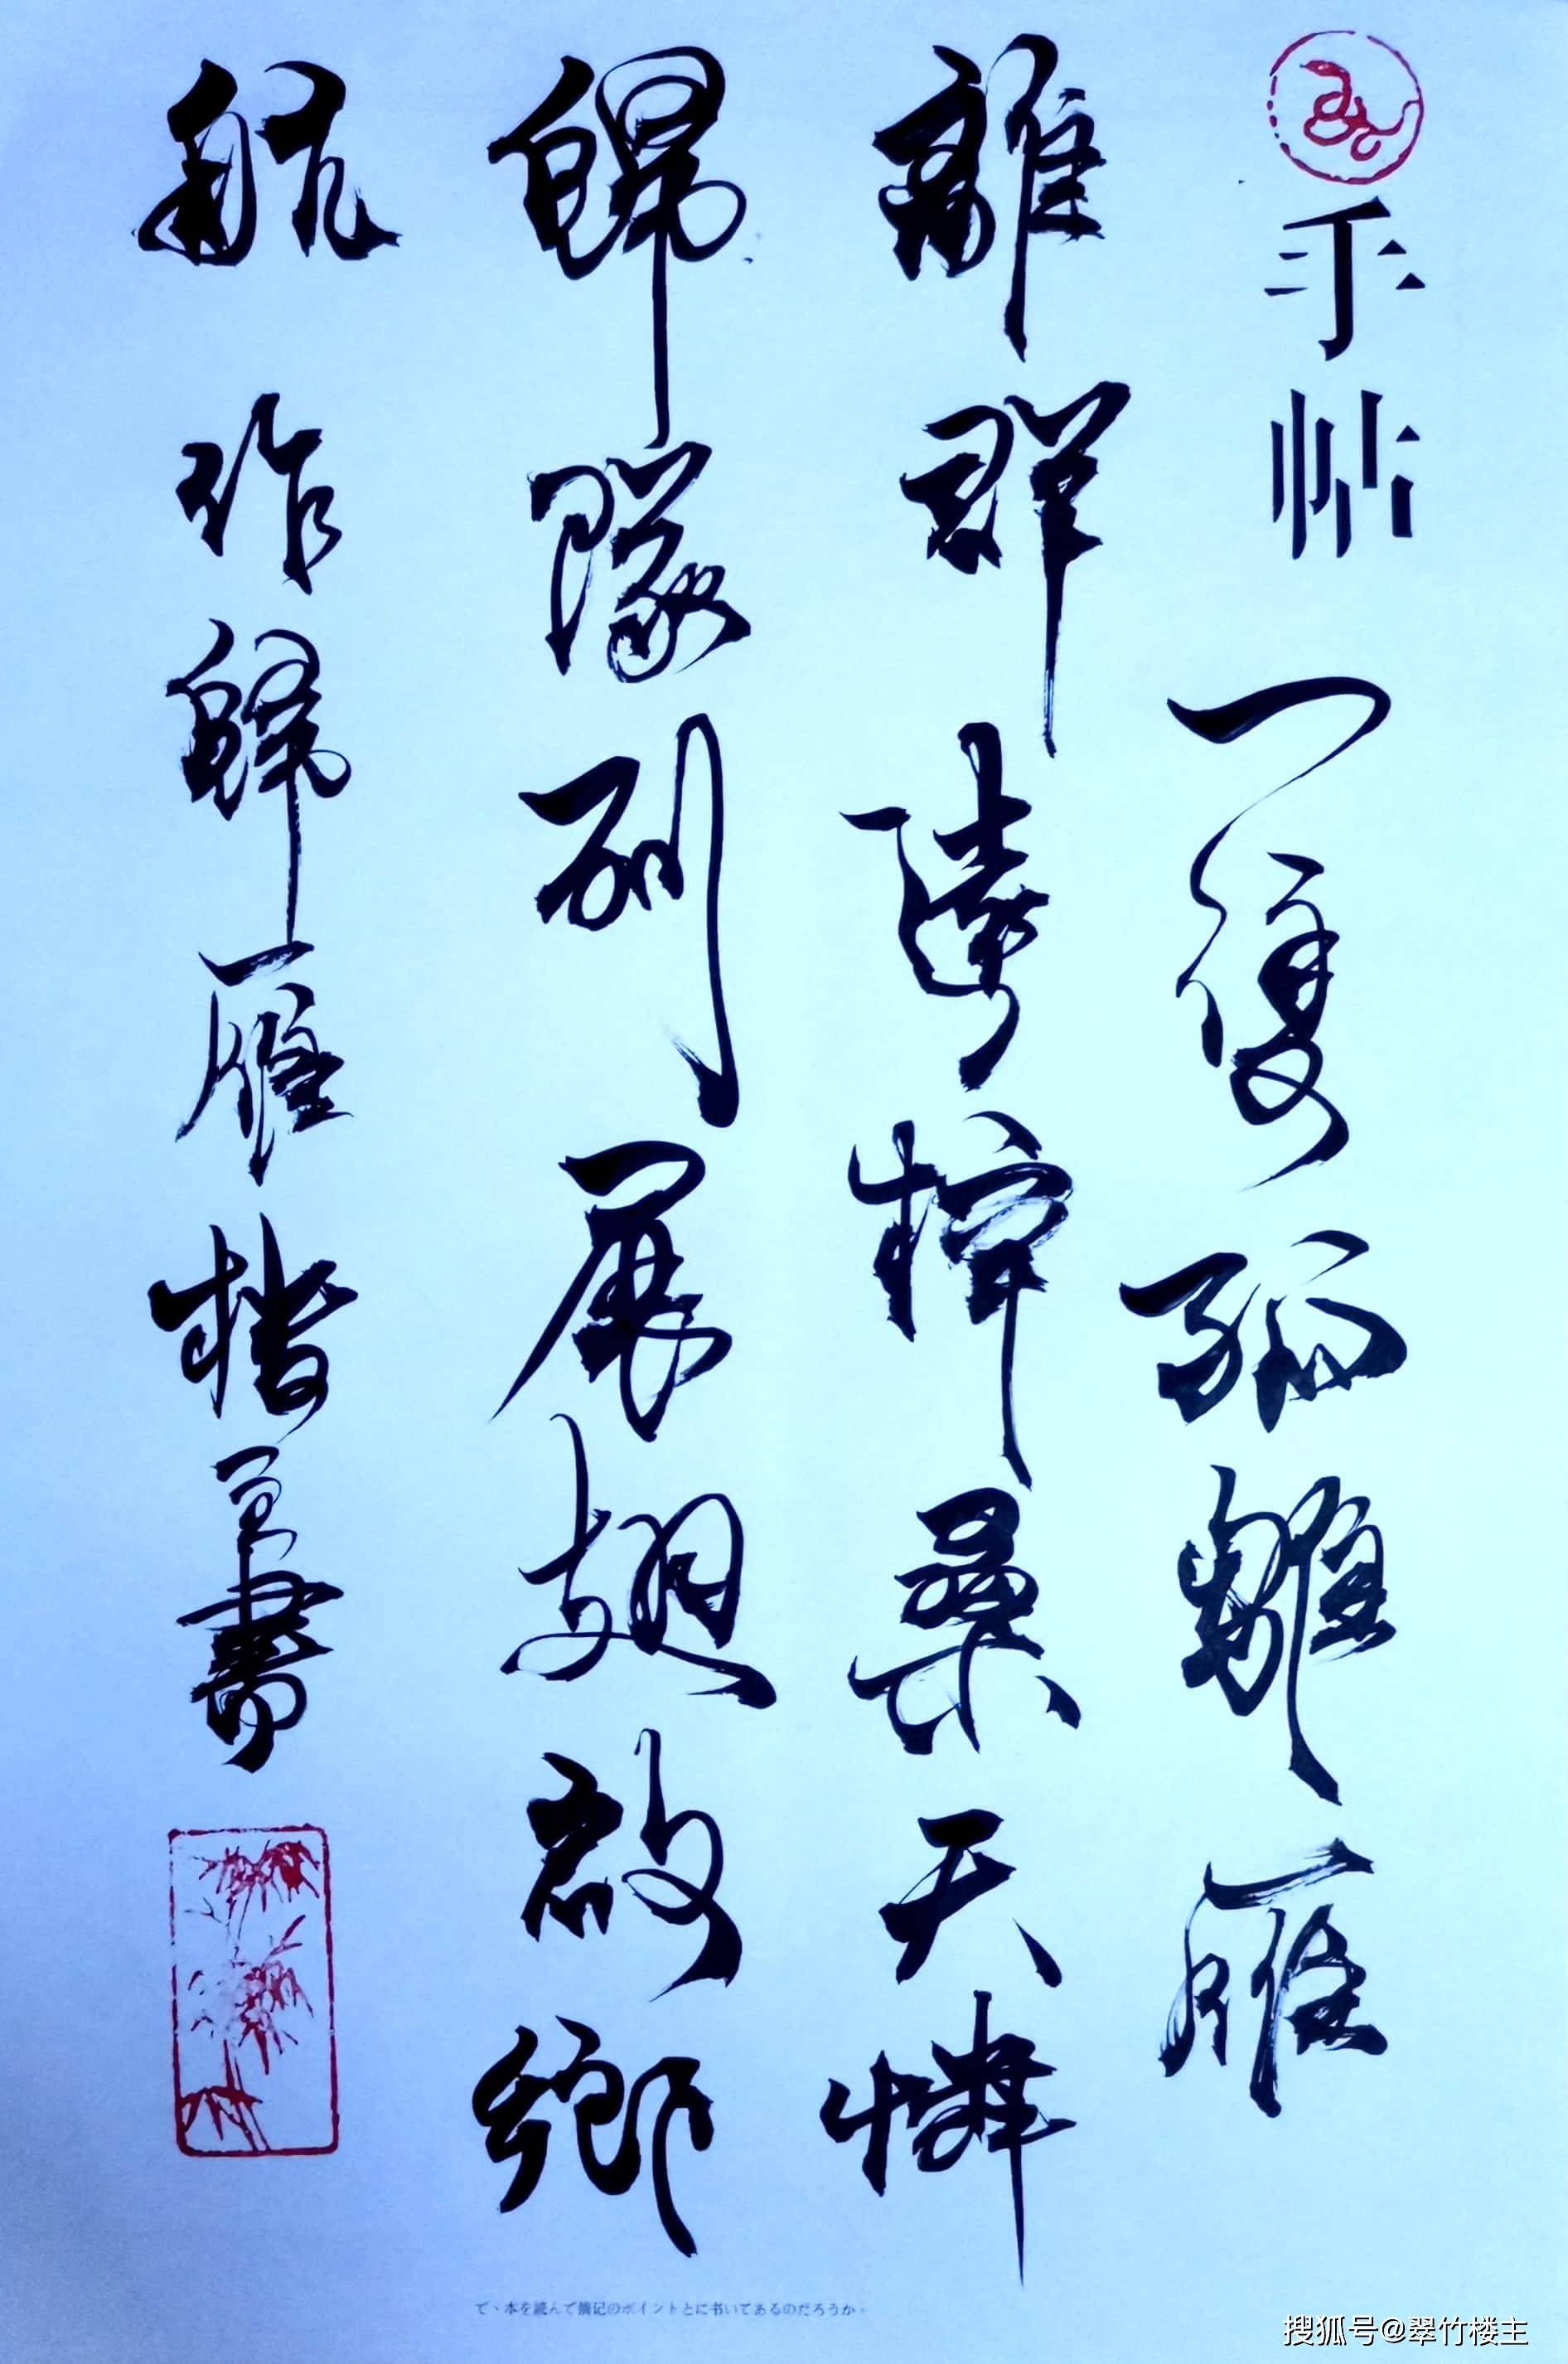 手帖 一隻孤雛雁
離群遠梓桑天憐
歸隊列展翅啟鄉
航 作歸雁 楷書
で、本を読んで簡记のポイントとに书いてあるのだろうか。
搜狐号@翠竹楼主